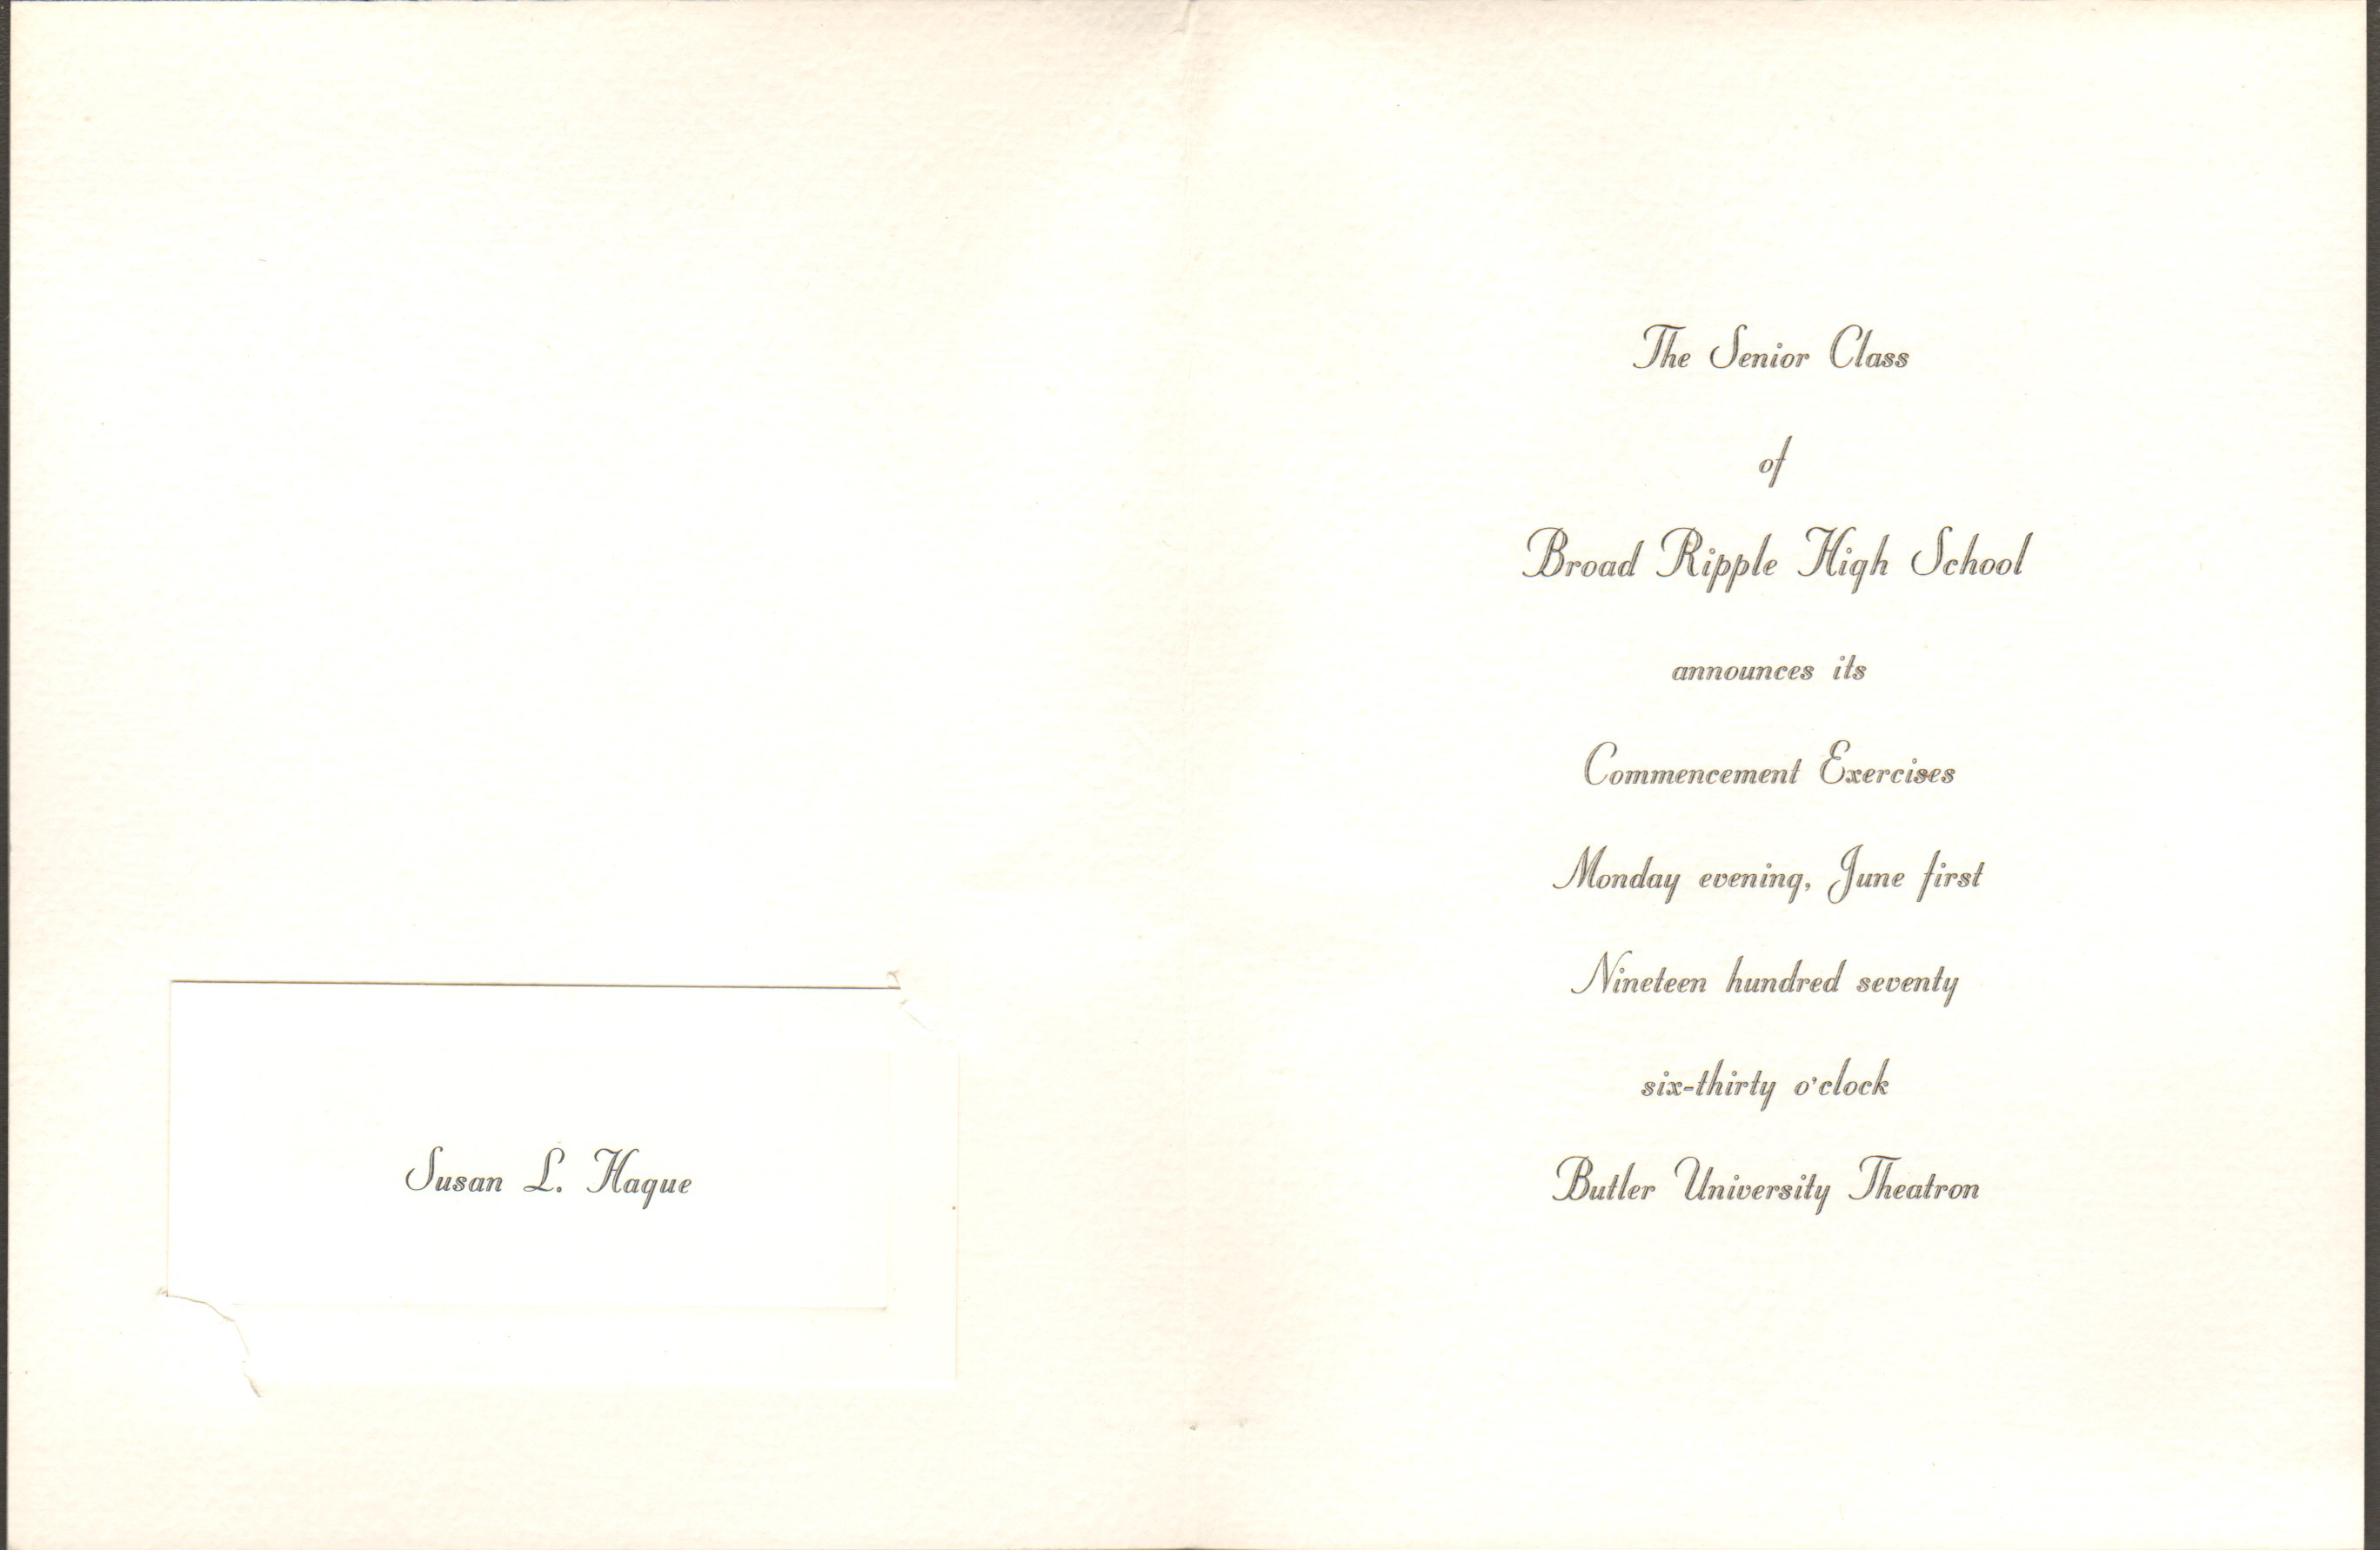 Susan L. Hague
The Senior Class
of
Broad Ripple High School
announces its
Commencement Exercises
Monday evening, June first
Nineteen hundred seventy
six-thirty o'clock
Butler University Theatron